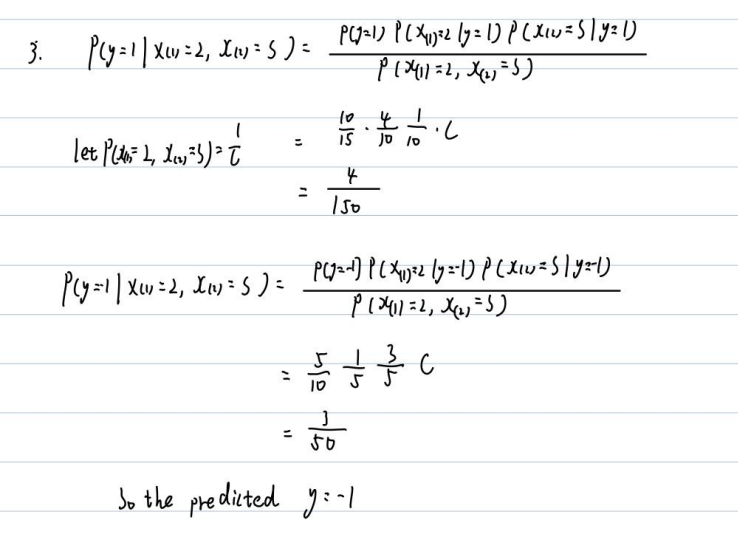 3. P(y=1 | x(1)=2, x(2)=S) = P(y=1) P(x(1)=2 | y=1) P(x(2)=S | y=1) / P(x(1)=2, x(2)=S)
let P(x(1)=2, x(2)=S) = 1/C = 10/15 · 4/10 1/10 · C
= 4/150
P(y=-1 | x(1)=2, x(2)=S) = P(y=-1) P(x(1)=2 | y=-1) P(x(2)=S | y=-1) / P(x(1)=2, x(2)=S)
= 5/10 1/5 3/5 C
= 3/50
So the predicted y=-1